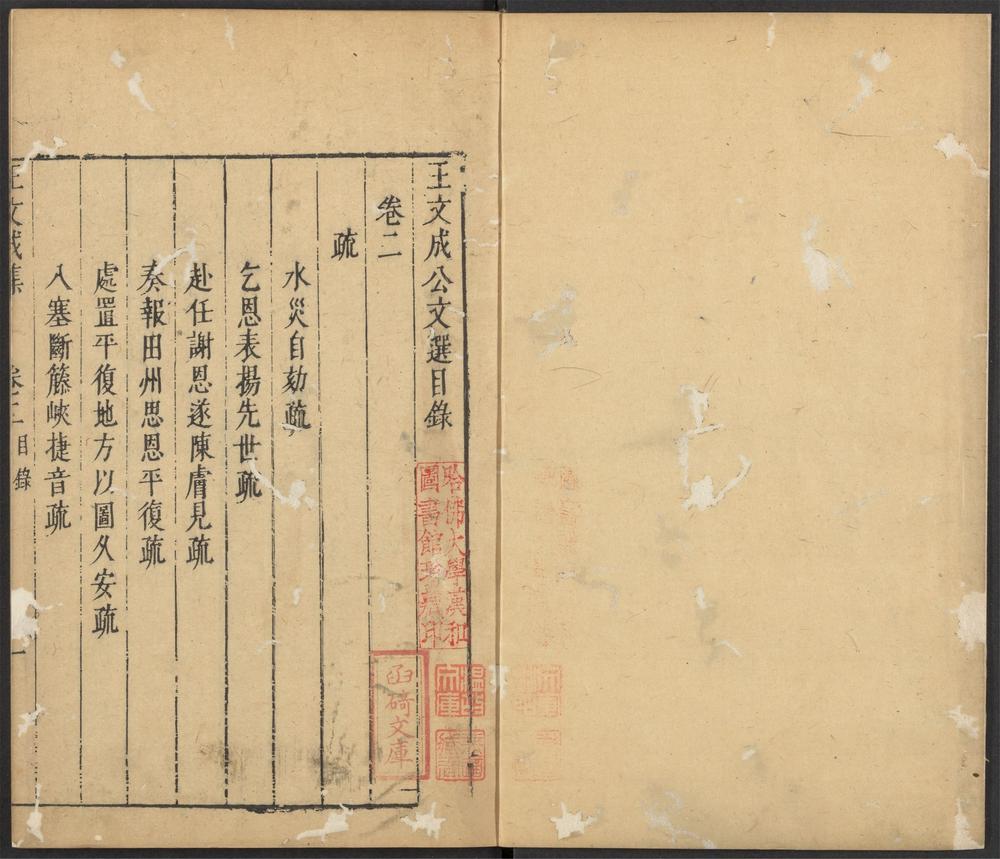 王文成公文選目錄
卷二
疏
水災自劾疏
乞恩表揚先世疏
赴任謝恩遂陳膚見疏
奏報田州思恩平復疏
處置平復地方以圖久安疏
入塞斷籐峽捷音疏
王文成集 卷二目錄 一
哈佛大學漢和
圖書館珍藏印
文庫